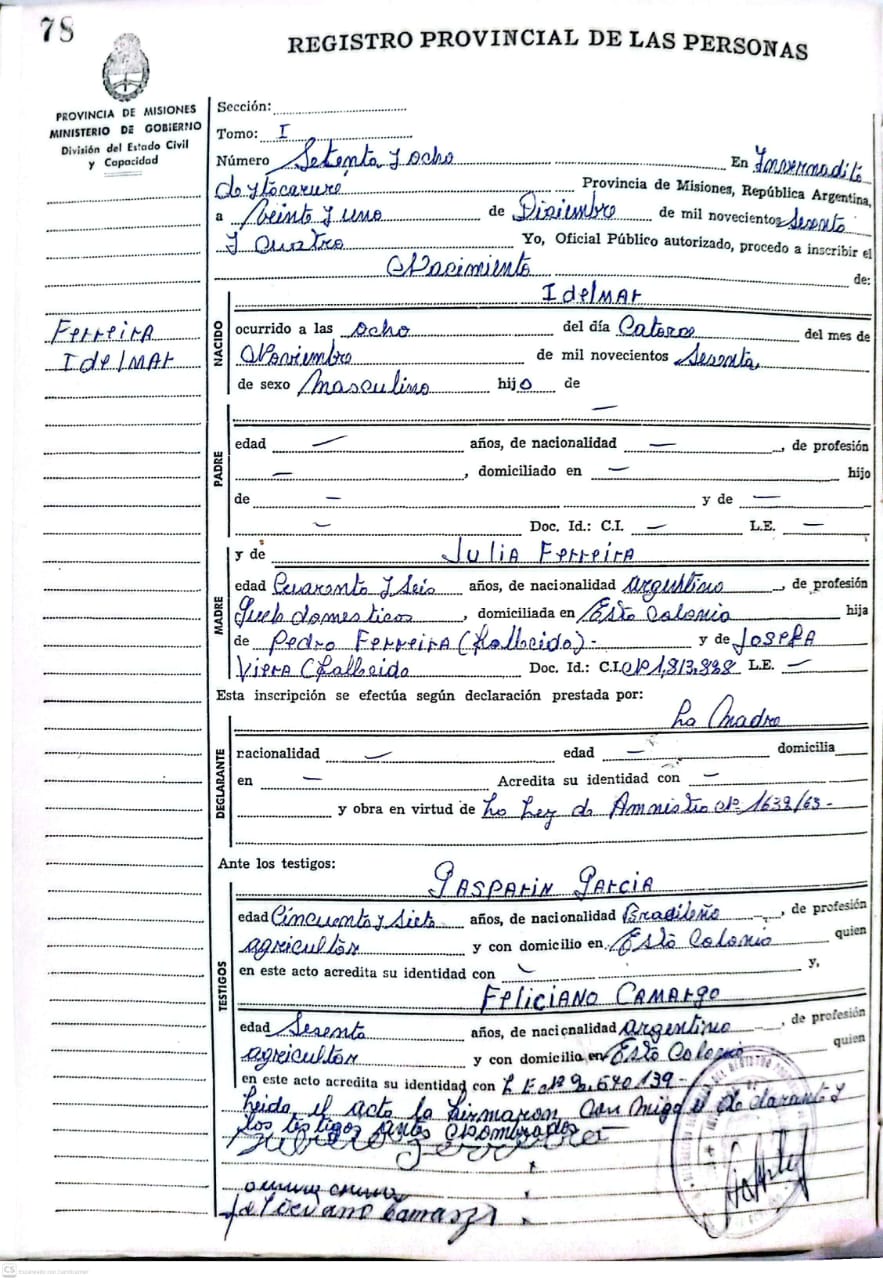 78
REGISTRO PROVINCIAL DE LAS PERSONAS
PROVINCIA DE MISIONES
MINISTERIO DE GOBIERNO
División del Estado Civil
y Capacidad
Sección:
Tomo: I
Número Setenta y ocho En Invernadita
de Itacaruré Provincia de Misiones, República Argentina,
a Veinte y uno de Diciembre de mil novecientos Sesenta
y Cuatro Yo, Oficial Público autorizado, procedo a inscribir el
Nacimiento de:
Ferreira
Idelmar
NACIDO
Idelmar
ocurrido a las ocho del día Catorce del mes de
Noviembre de mil novecientos Sesenta,
de sexo Masculino hijo de
PADRE
—
edad — años, de nacionalidad —, de profesión
—, domiciliado en — hijo
de — y de —
— Doc. Id.: C.I. — L.E. —
MADRE
y de Julia Ferreira
edad Cuarenta y Seis años, de nacionalidad argentina, de profesión
Queh domesticos, domiciliada en Esta Colonia hija
de Pedro Ferreira (fallecido).- y de Josefa
Viera (fallecida Doc. Id.: C.I. Nº 1,813,838 L.E. —
Esta inscripción se efectúa según declaración prestada por:
DECLARANTE
La Madre
nacionalidad — edad — domicilia
en — Acredita su identidad con —
y obra en virtud de La Ley de Amnistia Nº 1632/63-
Ante los testigos:
TESTIGOS
Gasparin Garcia
edad Cincuenta y Siete años, de nacionalidad Brasileño, de profesión
agricultor y con domicilio en Esta Colonia quien
en este acto acredita su identidad con — y,
Feliciano Camargo
edad Sesenta años, de nacionalidad argentino, de profesión
agricultor y con domicilio en Esta Colonia quien
en este acto acredita su identidad con L E Nº 2,640139-
Leida el acta la firmaron con migo el declarante y
los testigos antes Nombrados
Ferreira
Feliciano Camargo
CS